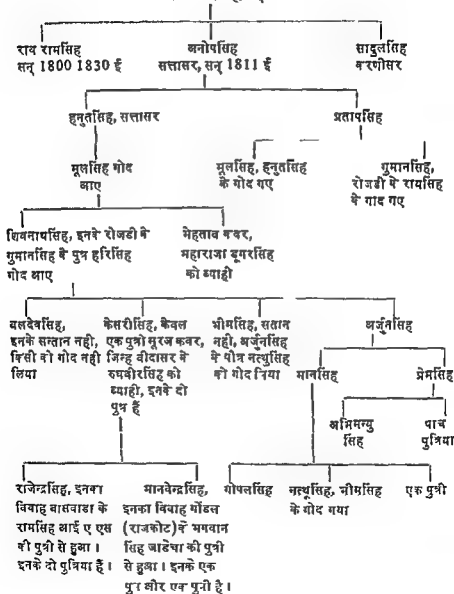 राय रामसिंह
सन् 1800 1830 ई
अनोपसिंह
सत्तासर, सन् 1811 ई
सादुलसिंह
करणीसर
हनुतसिंह, सत्तासर
प्रतापसिंह
मूलसिंह गोद
आए
मूलसिंह, हनुतसिंह
के गोद गए
गुमानसिंह,
रोजडी के रायसिंह
के गोद गए
शिवनाथसिंह, इनके रोजडी के
गुमानसिंह के पुत्र हरिसिंह
गोद आए
मेहताब कवर,
महाराजा डूगरसिंह
को ब्याही
बलदेवसिंह,
इनके सन्तान नही,
किसी को गोद नही
लिया
केसरीसिंह, केवल
एक पुत्री सुरज कवर,
जिन्ह बीदासर के
रुघवीरसिंह को
ब्याही, इनके दो
पुत्र हैं
भीमसिंह, सतान
नही, अर्जुनसिंह
के पौत्र नत्थुसिंह
को गोद लिया
अर्जुनसिंह
मानसिंह
प्रेमसिंह
अभिमन्यु
सिंह
पाच
पुत्रिया
राजेन्द्रसिंह, इनका
विवाह बासवाडा के
रामसिंह आई ए एस
की पुत्री से हुआ।
इनके दो पुत्रिया हैं।
मानवेन्द्रसिंह,
इनका विवाह गोंडल
(राजकोट) के भगवान
सिंह जाडेचा की पुत्री
से हुआ। इनके एक
पुत्र और एक पुत्री है।
गोपलसिंह
नत्थूसिंह, भीमसिंह
के गोद गया
एक पुत्री